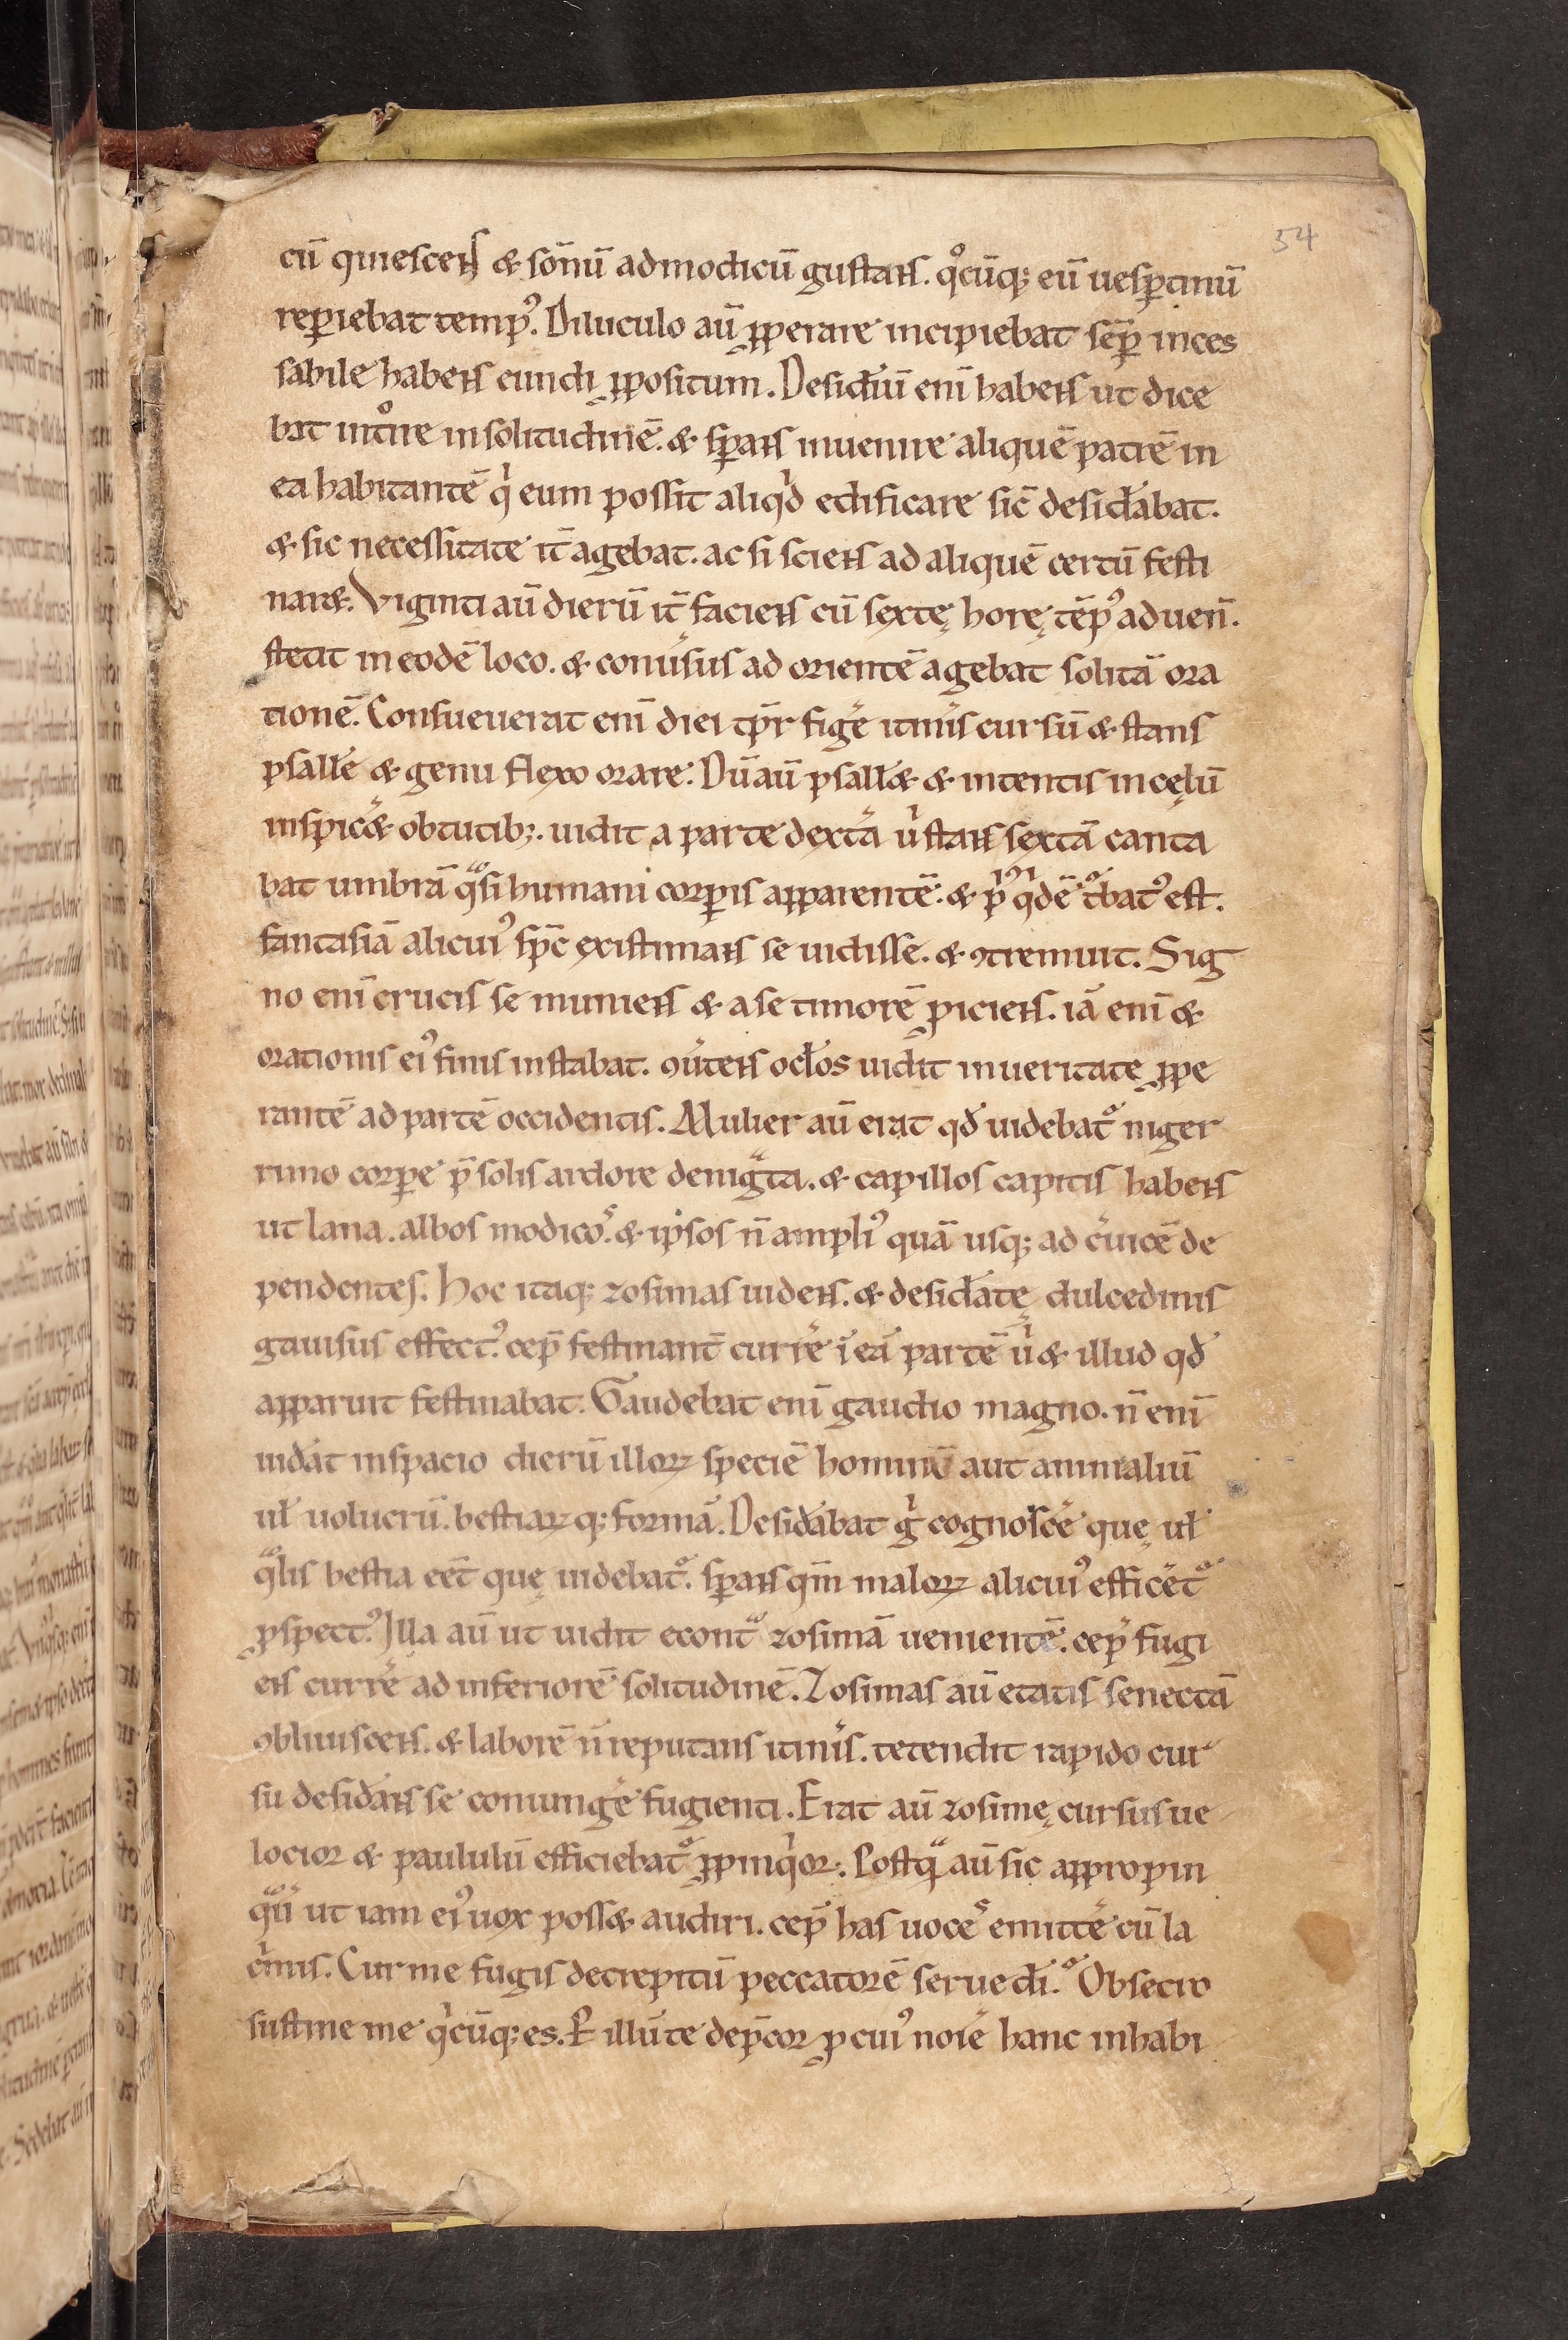 54
cū quiescens & sōnū ad modicū gustans. qͦcūq; eū uesꝑtinū
reꝑiebat temp᾽. Diluculo aū ꝓperare incipiebat sēꝑ inces
sabile habens eundi ꝓpositum. Desid̄iū enī habens ut dice
bat intͦire in solitudinē. & sꝑans inuenire aliquē patrē in
ea habitantē qⁱ eum possit aliqⁱd edificare sic̄ desid̄abat.
& sic necessitate it̄ agebat. ac si sciens ad aliquē certū festi
nar&. Viginti aū dierū it̄ faciens cū sextę horę tēp᾽ aduen̄.
stetit in eodē loco. & conu̓sus ad orientē agebat solitā ora
tionē. Consueuerat enī diei tp̄r fige̓ itin̓is cursū & stans
psalle̓ & genu flexo orare. Dū aū psall̓& & intentis in cęlū
inspic̓& obtutib;. uidit a parte dext̓a uⁱ stans sextā canta
bat umbrā qᵃsi humani corꝑis apparentē. & p̄ⁱᵒ qⁱdē tͦbat᾽ est.
fantasiā alicui᾽ sp̄c existimans se uidisse. & ꝯtremuit. Sig
no enī crucis se muniens & a se timorē ꝓiciens. iā enī &
orationis ei᾽ finis instabat. ꝯu̓tens oc̄los uidit in ueritate ꝓpe
rantē ad partē occidentis. Mulier aū erat qd̓ uidebatᷣ niger
rimo corꝑe p̄ solis ardore denigᵃta. & capillos capitis habens
ut lana. albos modicoˢ. & ipsos n̄ ampli᾽ quā usq; ad c̓uicē de
pendentes. Hoc itaq; zosimas uidens. & desid̄atę dulcedinis
gauisus effect᾽. cep̄ festinant̄ curre̓ ī eā partē uⁱ & illud qd̓
apparuit festinabat. Gaudebat enī gaudio magno. n̄ enī
uid̓at in spacio dierū illoꝝ speciē hominū aut animaliū
ul̓ uolucrū. bestiaꝝq; formā. Desid̓abat gⁱ cognosce̓ quę ul̓
qᵃlis bestia eēt quę uidebatᷣ. sꝑans qm̄ maloꝝ alicui᾽ effice̓tᷣ
ꝓspect᾽. Illa aū ut uidit econtᵃ zosimā uenientē. cep̄ fugi
ens curre̓ ad inferiorē solitudinē. Zosimas aū etatis senectā
obliuiscens. & laborē n̄ reputans itin̓is. tetendit rapido cur
su desid̓ans se coniunge̓ fugienti. Erat aū zosimę cursus ue
locior & paululū efficiebatᷣ ꝓpinqⁱor. Postqᵃ aū sic appropin
qᵃū ut iam ei᾽ uox poss& audiri. cep̄ has uoceˢ emitte̓ cū la
cⁱmis. Cur me fugis decrepitū peccatorē serue d̄i.ͦ Obsecro
sustine me qⁱcūq; es. P̱ illū te dep̄cor ꝓ cui᾽ noīe hanc inhabi